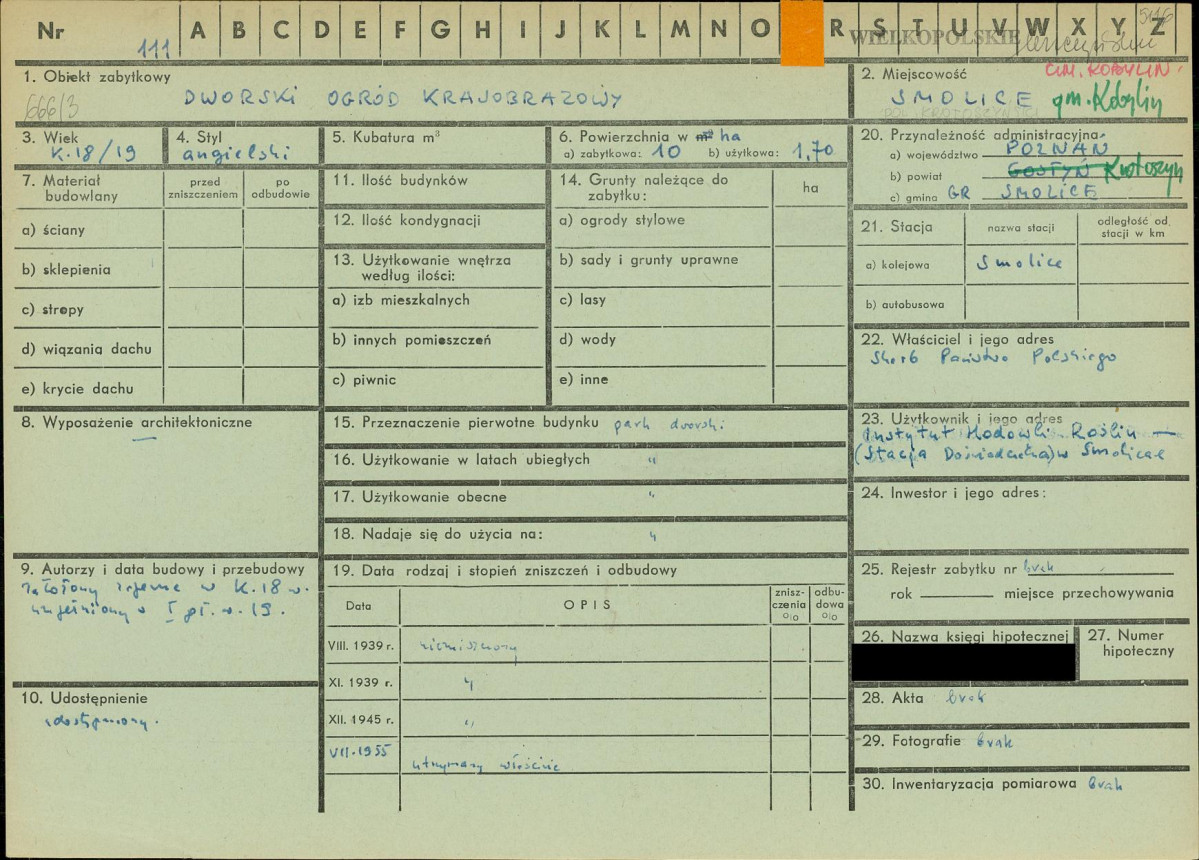 Nr 111 A B C D E F G H I J K L M N O R S T U V W X Y Z
5116
WIELKOPOLSKIE
1. Obiekt zabytkowy
666/3
DWORSKI OGRÓD KRAJOBRAZOWY
2. Miejscowość
GM. KOBYLIN
SMOLICE gm. Kobylin
3. Wiek
K. 18/19
4. Styl
angielski
5. Kubatura m³
6. Powierzchnia w m² ha
a) zabytkowa: 10 b) użytkowa: 1,70
20. Przynależność administracyjna
a) województwo POZNAŃ
b) powiat GOSTYŃ Krotoszyn
c) gmina GR SMOLICE
7. Materiał budowlany
przed zniszczeniem
po odbudowie
a) ściany
b) sklepienia
c) stropy
d) wiązania dachu
e) krycie dachu
11. Ilość budynków
12. Ilość kondygnacji
13. Użytkowanie wnętrza
według ilości:
a) izb mieszkalnych
b) innych pomieszczeń
c) piwnic
14. Grunty należące do
zabytku:
ha
a) ogrody stylowe
b) sady i grunty uprawne
c) lasy
d) wody
e) inne
21. Stacja
nazwa stacji
odległość od
stacji w km
a) kolejowa Smolice
b) autobusowa
22. Właściciel i jego adres
Skarb Państwa Polskiego
8. Wyposażenie architektoniczne
—
15. Przeznaczenie pierwotne budynku park dworski
16. Użytkowanie w latach ubiegłych "
17. Użytkowanie obecne "
18. Nadaje się do użycia na: "
23. Użytkownik i jego adres
Instytut Hodowli Roślin —
(Stacja Doświadczalna) w Smolicach
24. Inwestor i jego adres:
9. Autorzy i data budowy i przebudowy
założony zapewne w K. 18 w.
w I pł. w. 19.
19. Data rodzaj i stopień zniszczeń i odbudowy
Data
OPIS
znisz-
czenia
%
odbu-
dowa
%
VIII. 1939 r. niezniszczony
XI. 1939 r. "
XII. 1945 r. "
VII. 1955 utrzymany właściwie
25. Rejestr zabytku nr brak
rok miejsce przechowywania
26. Nazwa księgi hipotecznej
27. Numer
hipoteczny
10. Udostępnienie
udostępniony.
28. Akta brak
29. Fotografie brak
30. Inwentaryzacja pomiarowa brak